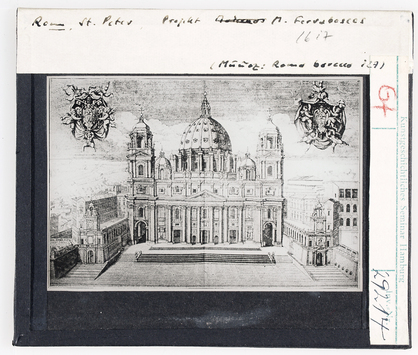 Rom, St. Peter Projekt M. Ferrabosco
1617
(Muñoz: Roma barocca 129)
Gt
Kunstgeschichtliches Seminar Hamburg